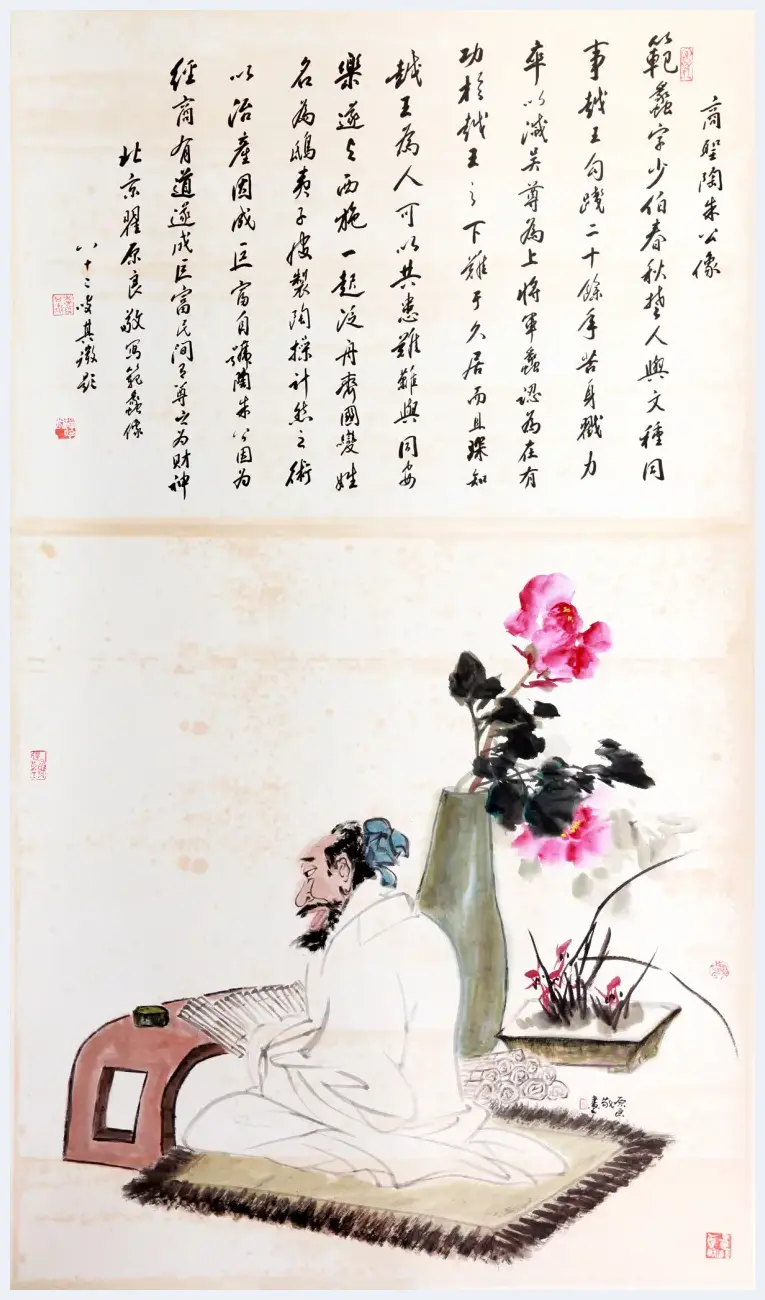 商聖陶朱公像
範蠡字少伯春秋楚人與文種同
事越王勾踐二十餘年苦身戮力
卒以滅吳尊為上將軍蠡認為在有
功於越王之下難于久居而且深知
越王為人可以共患難難與同安
樂遂与西施一起泛舟齊國變姓
名為鴟夷子皮製陶操計然之術
以治產因成巨富自號陶朱公因為
經商有道遂成巨富民間有尊之为財神
北京翟原良敬写範蠡像
八十二叟其徵題
原良
敬畫